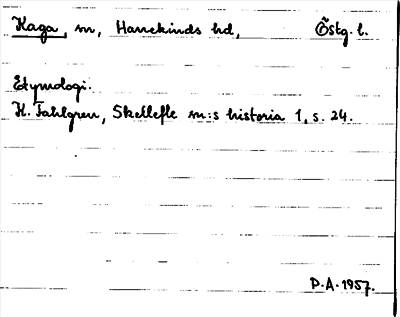 Kaga, sn, Hanekinds hd, Östg. l.
Etymologi:
K. Fahlgren, Skellefte sn:s historia 1, s. 24.
P.A. 1957.